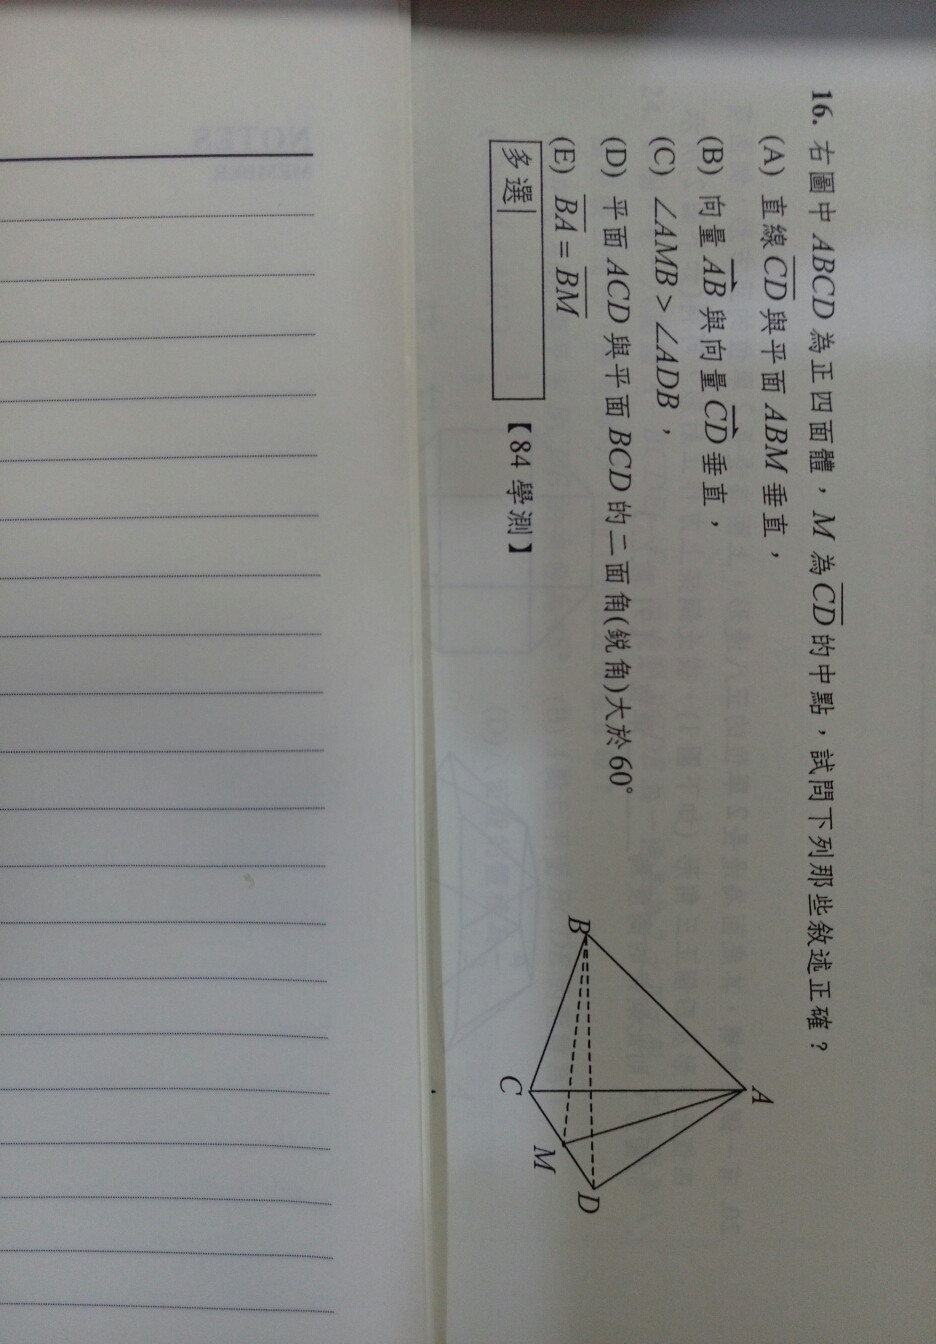 16. 右圖中 ABCD 為正四面體，M 為 CD 的中點，試問下列那些敘述正確？
(A) 直線 CD 與平面 ABM 垂直，
(B) 向量 AB 與向量 CD 垂直，
(C) ∠AMB > ∠ADB，
(D) 平面 ACD 與平面 BCD 的二面角(銳角)大於 60°
(E) BA = BM
多選 【84 學測】
A
B
C
M
D
NOTES
MEMBER